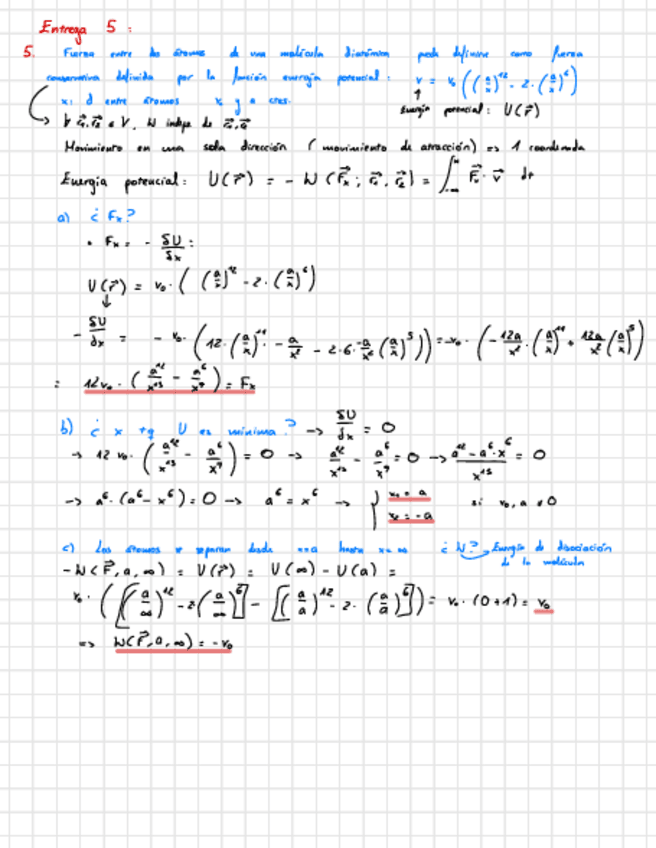 Entrega 5 :
5. Fuerza entre los átomos de una molécula diatómica puede definirse como fuerza
conservativa definida por la función energía potencial : v = v₀ ((a/x)¹² - 2·(a/x)⁶)
x: d entre átomos v₀ y a ctes. Energía potencial: U(r⃗)
W indep de
Movimiento en una sola dirección (movimiento de atracción) => 1 coordenada
Energía potencial: U(r⃗) = - W (F⃗ₓ ; r⃗₁, r⃗₂) = ∫ F⃗ · v⃗ dt
a) ¿ Fx?
• Fx = - δU/δx :
U(r⃗) = v₀ · ((a/x)¹² - 2·(a/x)⁶)
- δU/δx = - v₀ · (12·(a/x)¹¹ · -a/x² - 2·6·-a/x² (a/x)⁵) = -v₀ · (-12a/x² · (a/x)¹¹ + 12a/x² (a/x)⁵)
= 12v₀ · (a¹²/x¹³ - a⁶/x⁷) = Fx
b) ¿ x tq U es mínima? -> δU/δx = 0
-> 12 v₀ · (a¹²/x¹³ - a⁶/x⁷) = 0 -> a¹²/x¹³ - a⁶/x⁷ = 0 -> a¹² - a⁶·x⁶/x¹³ = 0
-> a⁶·(a⁶ - x⁶) = 0 -> a⁶ = x⁶ -> { x₁ = a si v₀, a ≠ 0
x₂ = -a
c) Los átomos se separan desde x=a hasta x=∞ ¿ W? Energía de disociación
de la molécula
- W(F⃗, a, ∞) = U(r⃗) = U(∞) - U(a) =
v₀ · ([(a/∞)¹² - 2(a/∞)⁶] - [(a/a)¹² - 2·(a/a)⁶]) = v₀ · (0+1) = v₀
=> W(F⃗, a, ∞) = -v₀